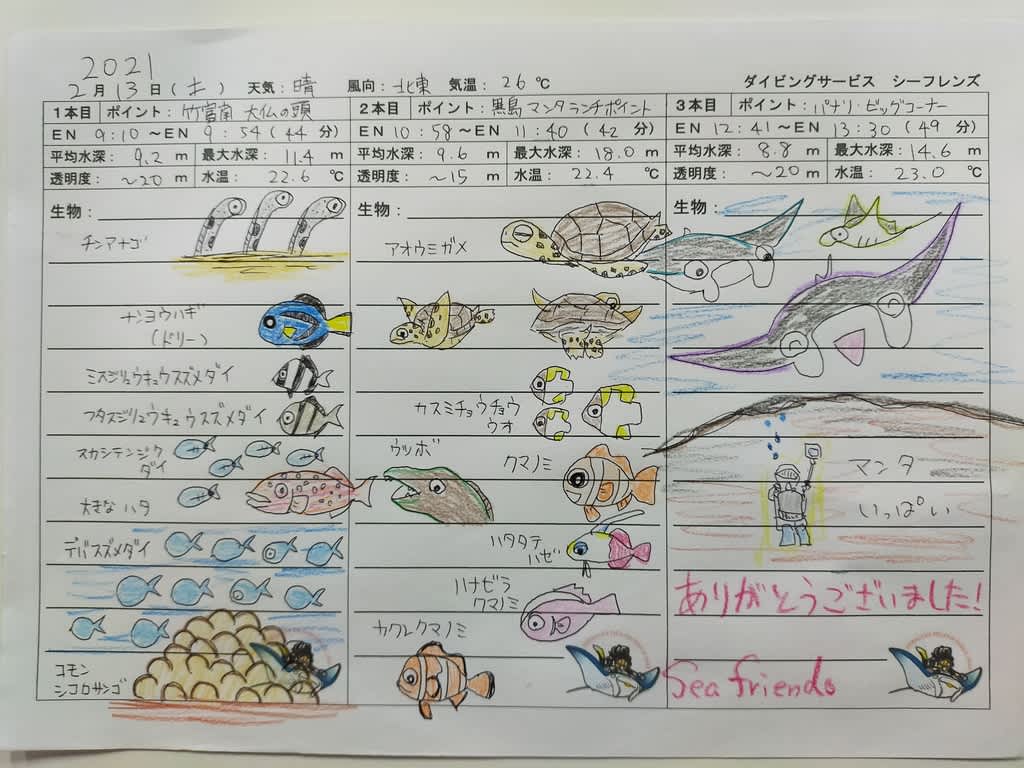 2021
2月13日(土) 天気:晴 風向:北東 気温:26℃ ダイビングサービス シーフレンズ
1本目 ポイント:竹富南 大仏の頭
EN 9:10~EN 9:54(44分)
平均水深:9.2m 最大水深:11.4m
透明度:~20m 水温:22.6℃
生物:
チンアナゴ
ナンヨウハギ
(ドリー)
ミスジリュウキュウスズメダイ
フタスジリュウキュウスズメダイ
スカシテンジク
ダイ
大きなハタ
デバスズメダイ
コモン
シコロサンゴ
2本目 ポイント:黒島 マンタランチポイント
EN 10:58~EN 11:40(42分)
平均水深:9.6m 最大水深:18.0m
透明度:~15m 水温:22.4℃
生物:
アオウミガメ
カスミチョウチョウ
ウオ
ウツボ
クマノミ
ハタタテ
ハゼ
ハナビラ
クマノミ
カクレクマノミ
3本目 ポイント:パナリ・ビッグコーナー
EN 12:41~EN 13:30(49分)
平均水深:8.8m 最大水深:14.6m
透明度:~20m 水温:23.0℃
生物:
マンタ
いっぱい
ありがとうございました!
Sea friends